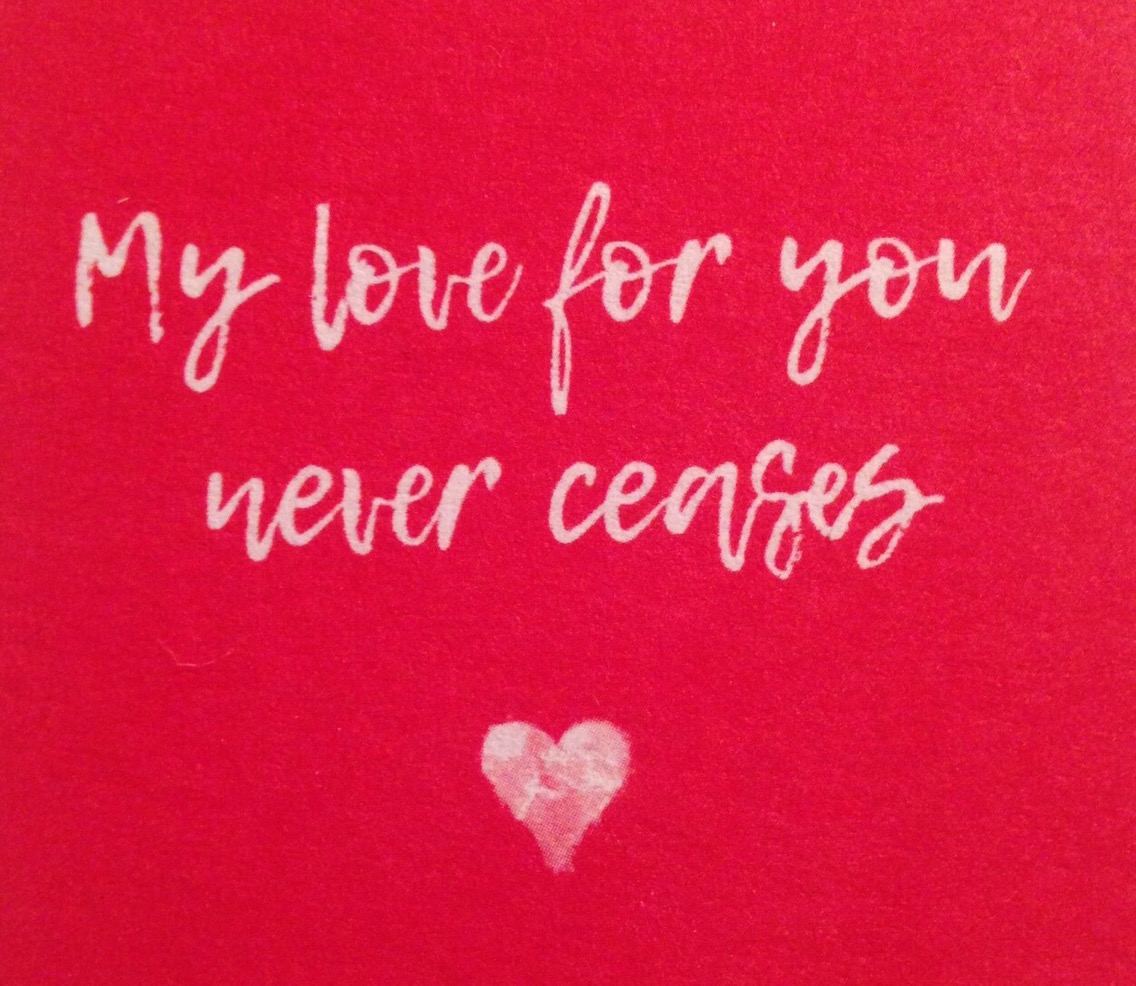 My love for you
never ceases